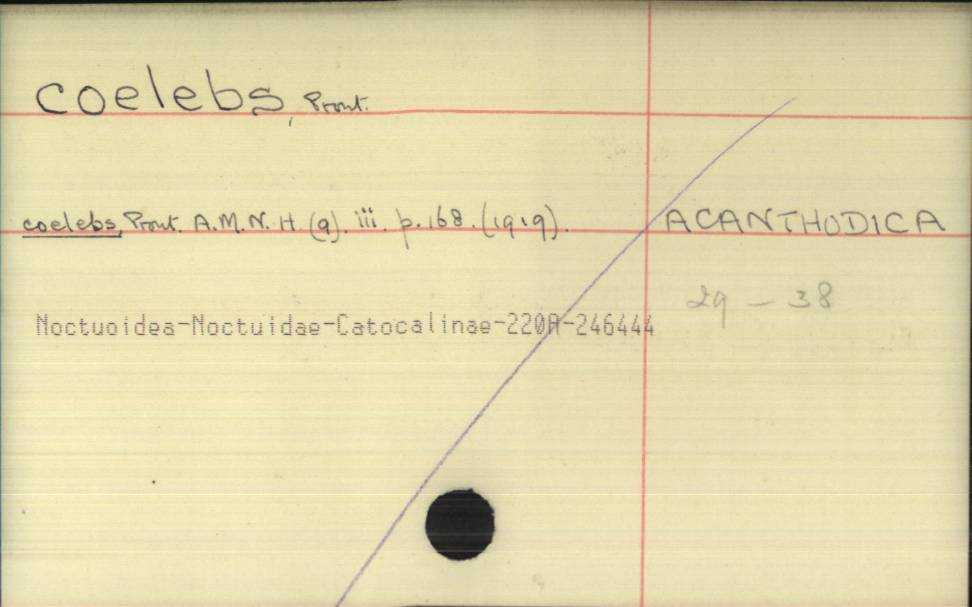 coelebs, Prout.
coelebs, Prout. A.M.N.H. (9). iii. p.168. (1919). ACANTHODICA
29 — 38
Noctuoidea-Noctuidae-Catocalinae-220A-246444